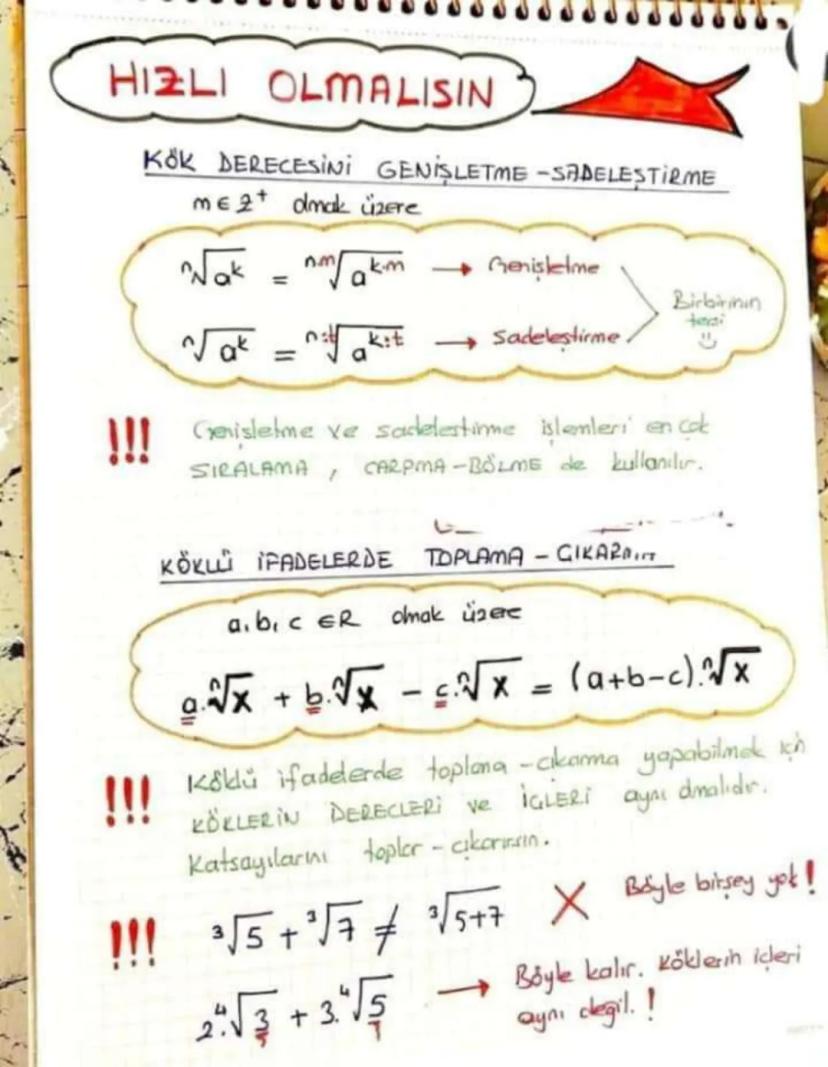 HIZLI OLMALISIN
KÖK DERECESİNİ GENİŞLETME - SADELEŞTİRME
m ∈ Z⁺ olmak üzere
ⁿ√aᵏ = ⁿ·ᵐ√aᵏ·ᵐ → Genişletme
ⁿ√aᵏ = ⁿ:ᵗ√aᵏ:ᵗ → Sadeleştirme
Birbirinin
tersi
!!! Genişletme ve sadeleştirme işlemleri en çok
SIRALAMA, ÇARPMA - BÖLME de kullanılır.
KÖKLÜ İFADELERDE TOPLAMA -
a, b, c ∈ R olmak üzere
a.ⁿ√x + b.ⁿ√x - c.ⁿ√x = (a+b-c).ⁿ√x
!!! Köklü ifadelerde toplama - çıkarma yapabilmek için
KÖKLERİN DERECLERİ ve İÇLERİ aynı olmalıdır.
Katsayılarını toplar - çıkarırsın.
!!! ³√5 + ³√7 ≠ ³√5+7 X Böyle birşey yok!
2.⁴√3 + 3.⁴√5 → Böyle kalır. Köklerin içleri
aynı değil.!